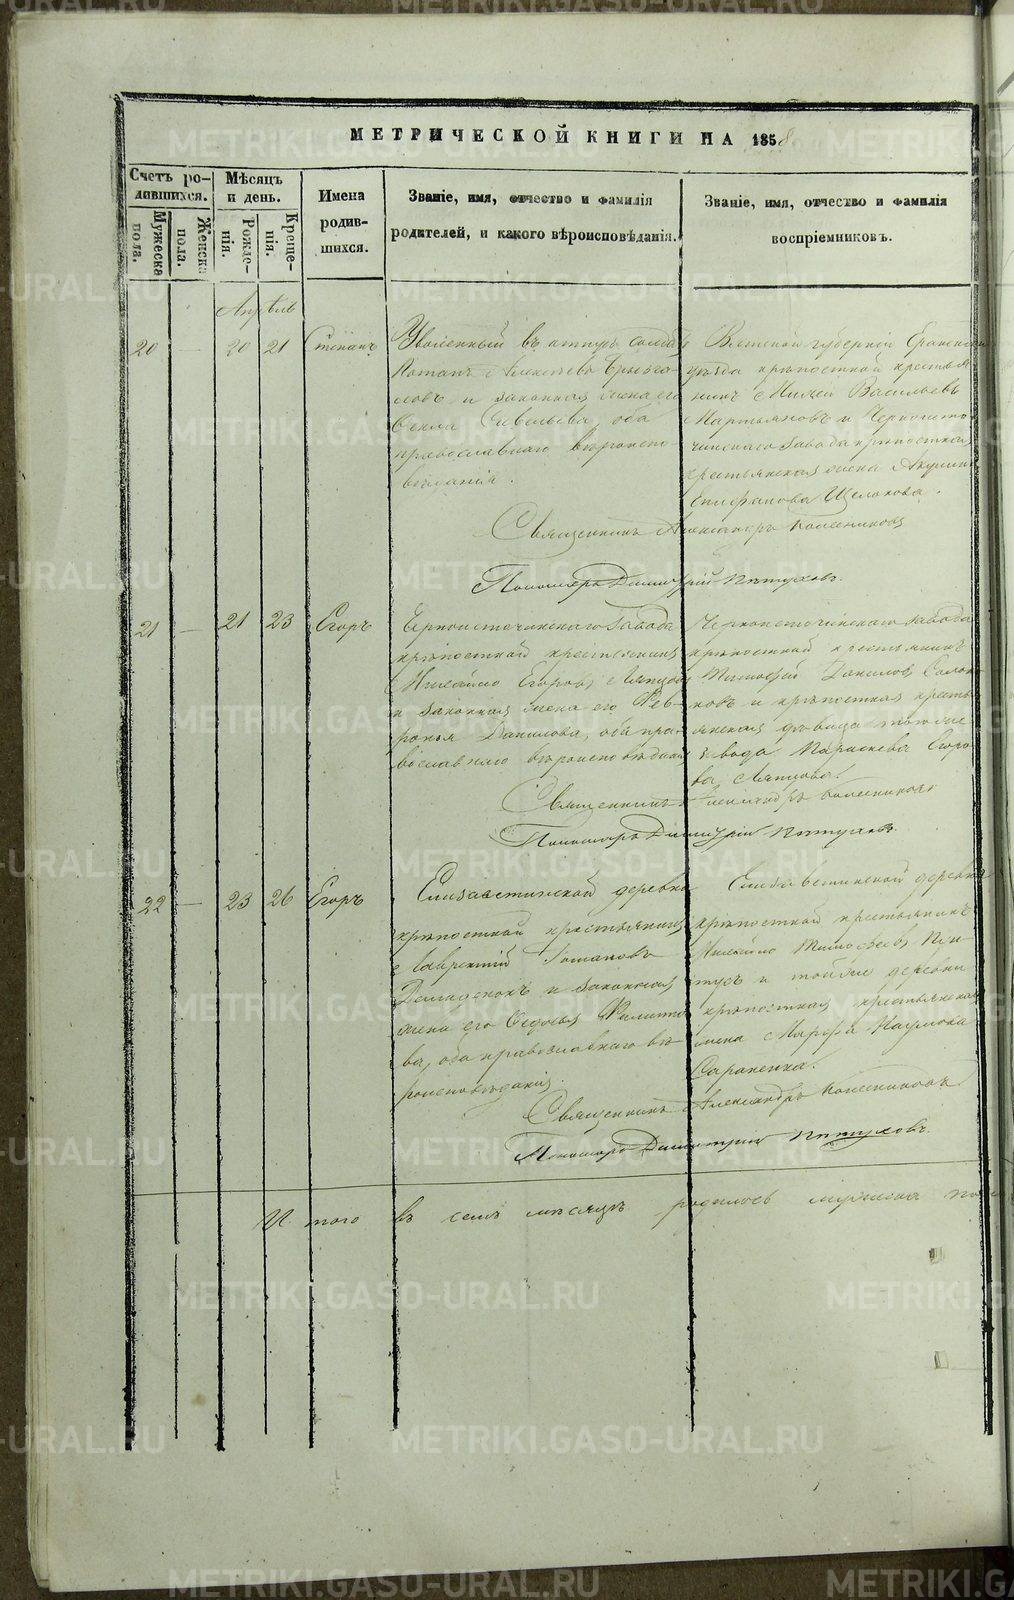 МЕТРИЧЕСКОЙ КНИГИ НА 1858
Счетъ ро-
дившихся.
Мѣсяцъ
и день.
Мужеска
пола.
Женска
пола.
Рожде-
нія.
Креще-
нія.
Имена
родив-
шихся.
Званіе, имя, отчество и фамилія
родителей, и какого вѣроисповѣданія.
Званіе, имя, отчество и фамилія
воспріемниковъ.
Апрѣль
20 — 20 21 Степанъ
Уволенный въ
Потапъ Алексѣевъ
и законная жена его
Фекла Савельева, оба
православнаго вѣроиспо-
вѣданія.
Вятской губерніи
уѣзда крѣпостной крестья-
нинъ Васильевъ
Мартьяновъ и Черноисто-
чинскаго завода крѣпостная
крестьянская жена
Епифанова Щелокова.
Священникъ Александръ Колесниковъ
Пономарь Димитрій Пѣтуховъ.
21 — 21 23 Егоръ
Черноисточинскаго завода
крѣпостной крестьянинъ
Михайло Егоровъ
и законная жена его Фев-
ронья Данилова, оба пра-
вославнаго вѣроисповѣданія
Черноисточинскаго завода
крѣпостной крестьянинъ
Тимофей Данилов
и крѣпостная кресть-
янская дѣвица того же
завода Параскева Егоро-
ва
Священникъ Александръ Колесниковъ
Пономарь Димитрій Пѣтуховъ.
22 — 23 26 Егоръ
Елизаветинской деревни
крѣпостной крестьянинъ
Лаврентій
и законная
жена его Федосья Филипо-
ва, оба православнаго вѣ-
роисповѣданія.
Елизаветинской деревни
крѣпостной крестьянинъ
Михайло Тимофеевъ
и той же деревни
крѣпостная крестьянская
жена Марфа Наумова
Священникъ Александръ Колесниковъ
Пономарь Димитрій Пѣтуховъ.
И того въ семъ мѣсяцѣ родилось мужеска пола
METRIKI.GASO-URAL.RU